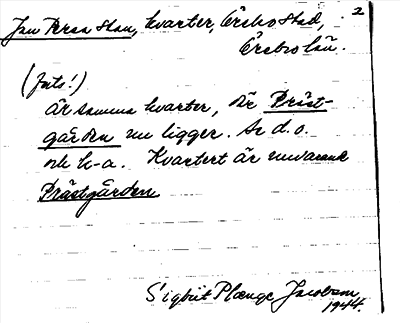 2
Jan Persa stan, kvarter, Örebro stad,
Örebro län.
(forts.)
är samma kvarter, där Präst-
gården nu ligger. Se d.o.
och k-a. Kvarteret är nuvarande
Prästgården
Sigbrit Plænge Jacobson
1944.